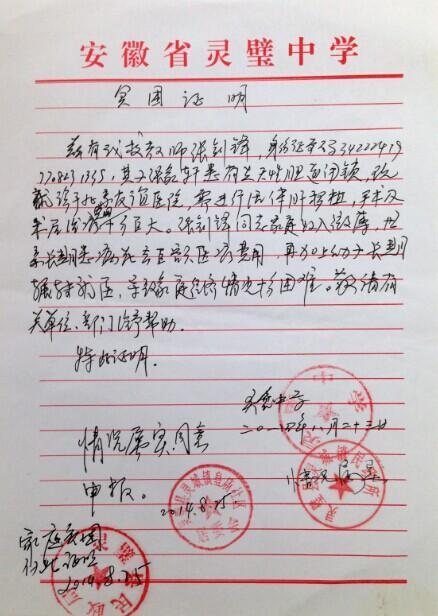 安徽省灵璧中学
贫困证明
兹有我校教师张钊锋，身份证号342224197
，其子张 轩患有先天性胆道闭锁，现
就诊于北京友谊医院，需进行活体肝移植，手术及
术后治疗费用十分巨大。张钊锋同志家庭收入微薄，
亲长期患病 医疗费用，再加上幼子长期
辗转就医，导致家庭经济情况十分困难。敬请有
关单位、部门给予帮助。
特此证明。
灵璧中学
二〇一四年八月二十三日
情况属实，同意
申报。
2014.8.25
情况属实
家庭贫困
特此证明
2014.8.25